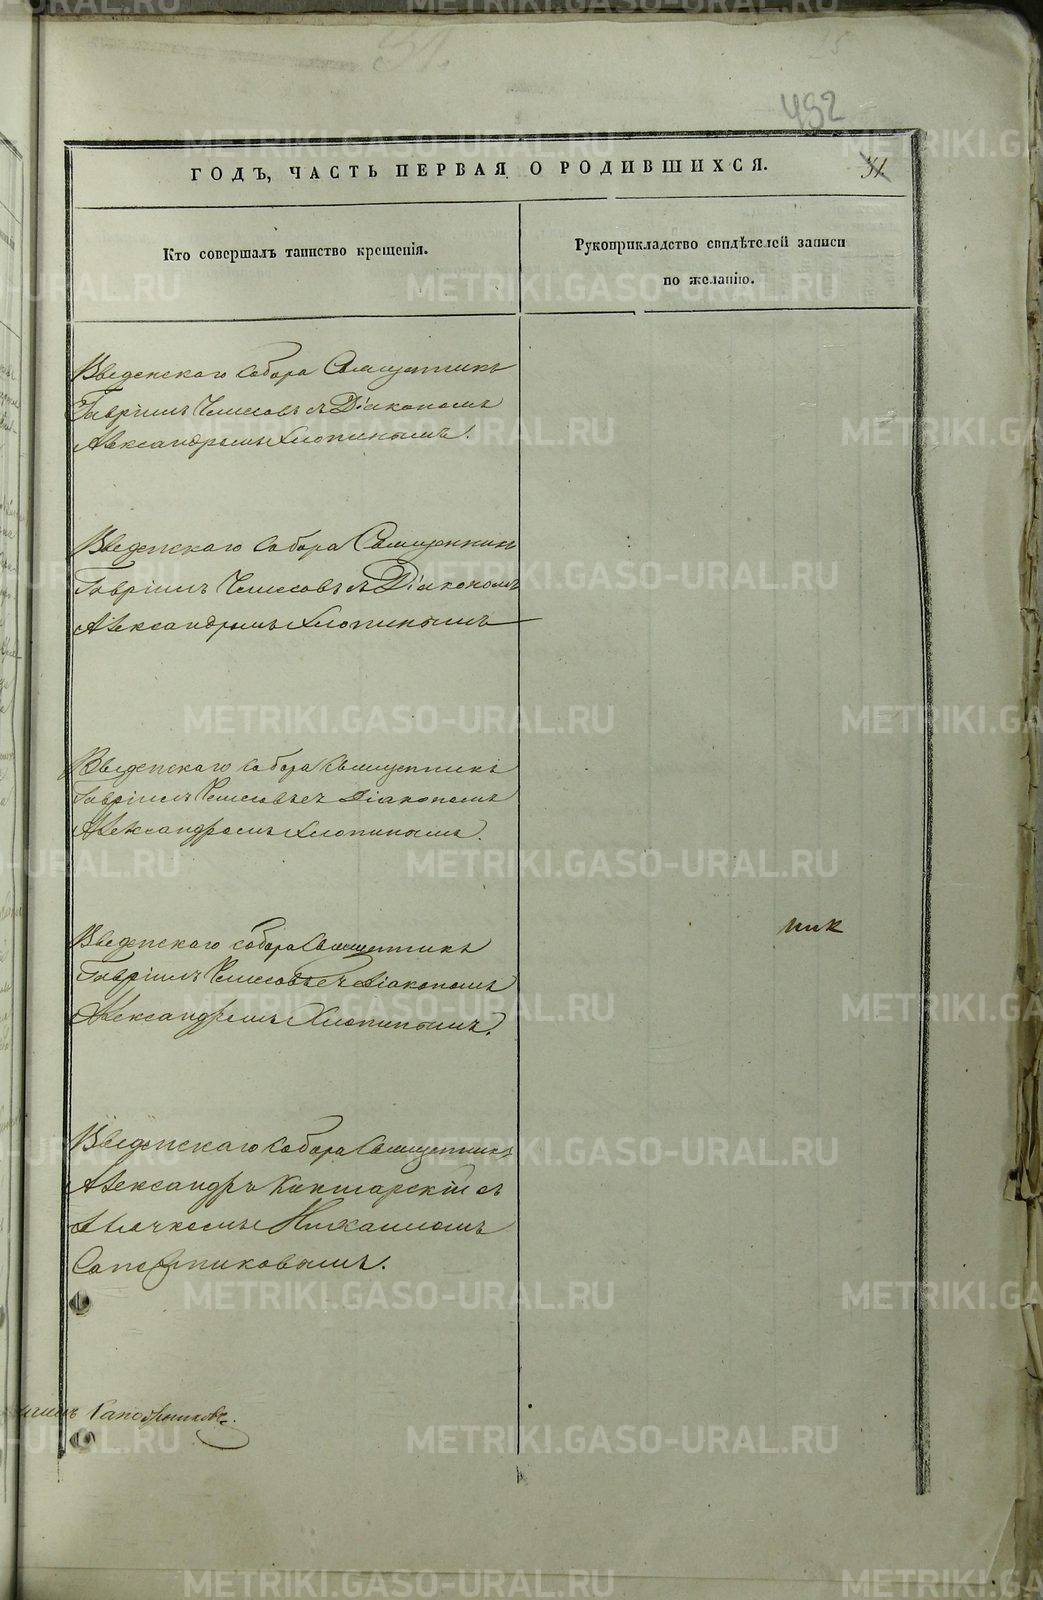 492
ГОДЪ, ЧАСТЬ ПЕРВАЯ О РОДИВШИХСЯ.
51.
Кто совершалъ таинство крещенія.
Рукоприкладство свидѣтелей записи
по желанію.
Введенскаго собора Священникъ
Гавріилъ съ Діакономъ
Александромъ Хлопинымъ.
Введенскаго собора Священникъ
Гавріилъ съ Діакономъ
Александромъ Хлопинымъ
Введенскаго собора Священникъ
Гавріилъ съ Діакономъ
Александромъ Хлопинымъ.
Введенскаго собора Священникъ
Гавріилъ съ Діакономъ
Александромъ Хлопинымъ.
Введенскаго собора Священникъ
Александръ съ
Дьячкомъ
Сапожниковымъ.
Сапожниковъ.
METRIKI.GASO-URAL.RU